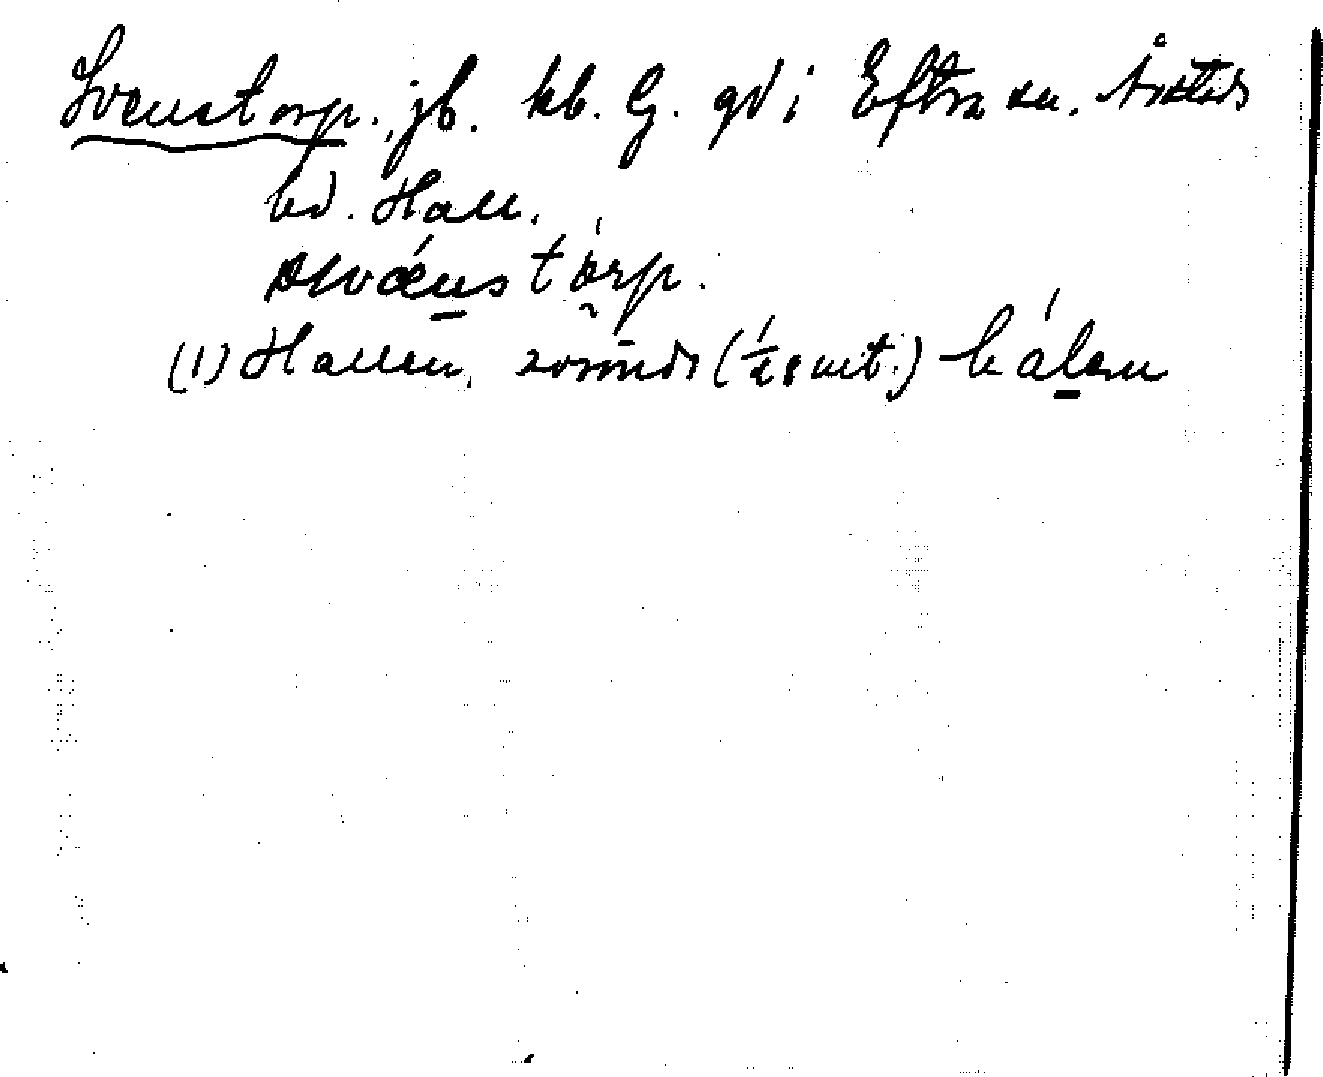 Svenstorp. jb. kb. G. gd i Eftra sn. Årstads
hd. Hall.
svǽnstórp.
(1) Hallen, (1/28 mt.) hálen